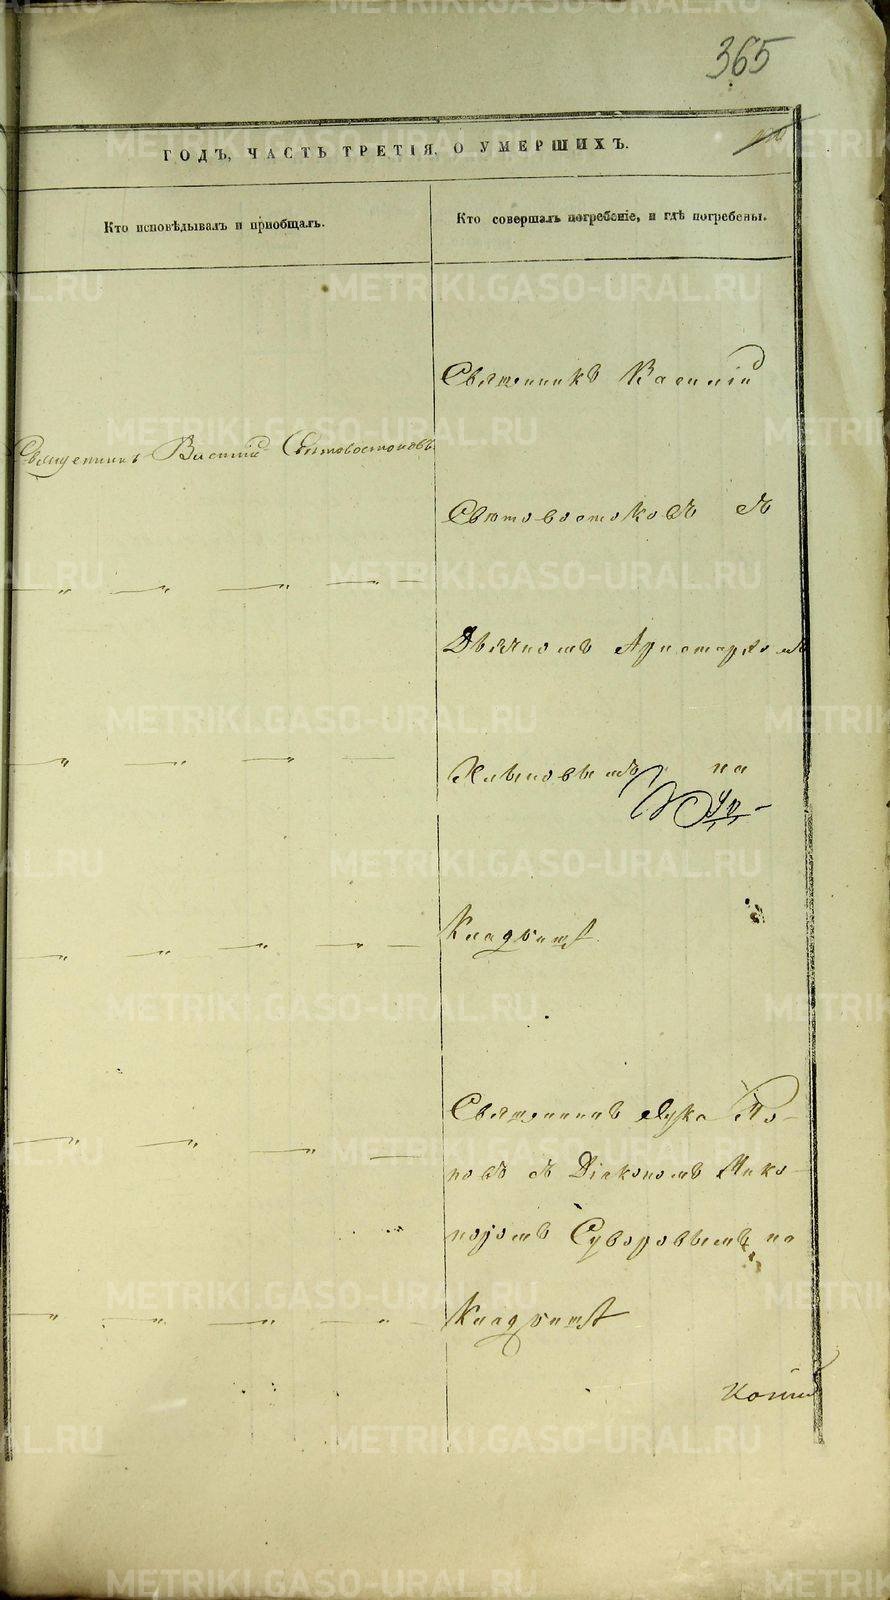 365
ГОДЪ, ЧАСТЬ ТРЕТІЯ, О УМЕРШИХЪ.
Кто исповѣдывалъ и пріобщалъ.
Кто совершалъ погребеніе, и гдѣ погребены.
Священникъ Василій Свѣтовостоковъ
Священникъ Василій
Свѣтовостоковъ съ
Дьячкомъ Аристархомъ
на
Кладбищѣ
Священникъ Лука По-
повъ съ Діакономъ Нико-
норомъ Суворовымъ на
Кладбищѣ
METRIKI.GASO-URAL.RU